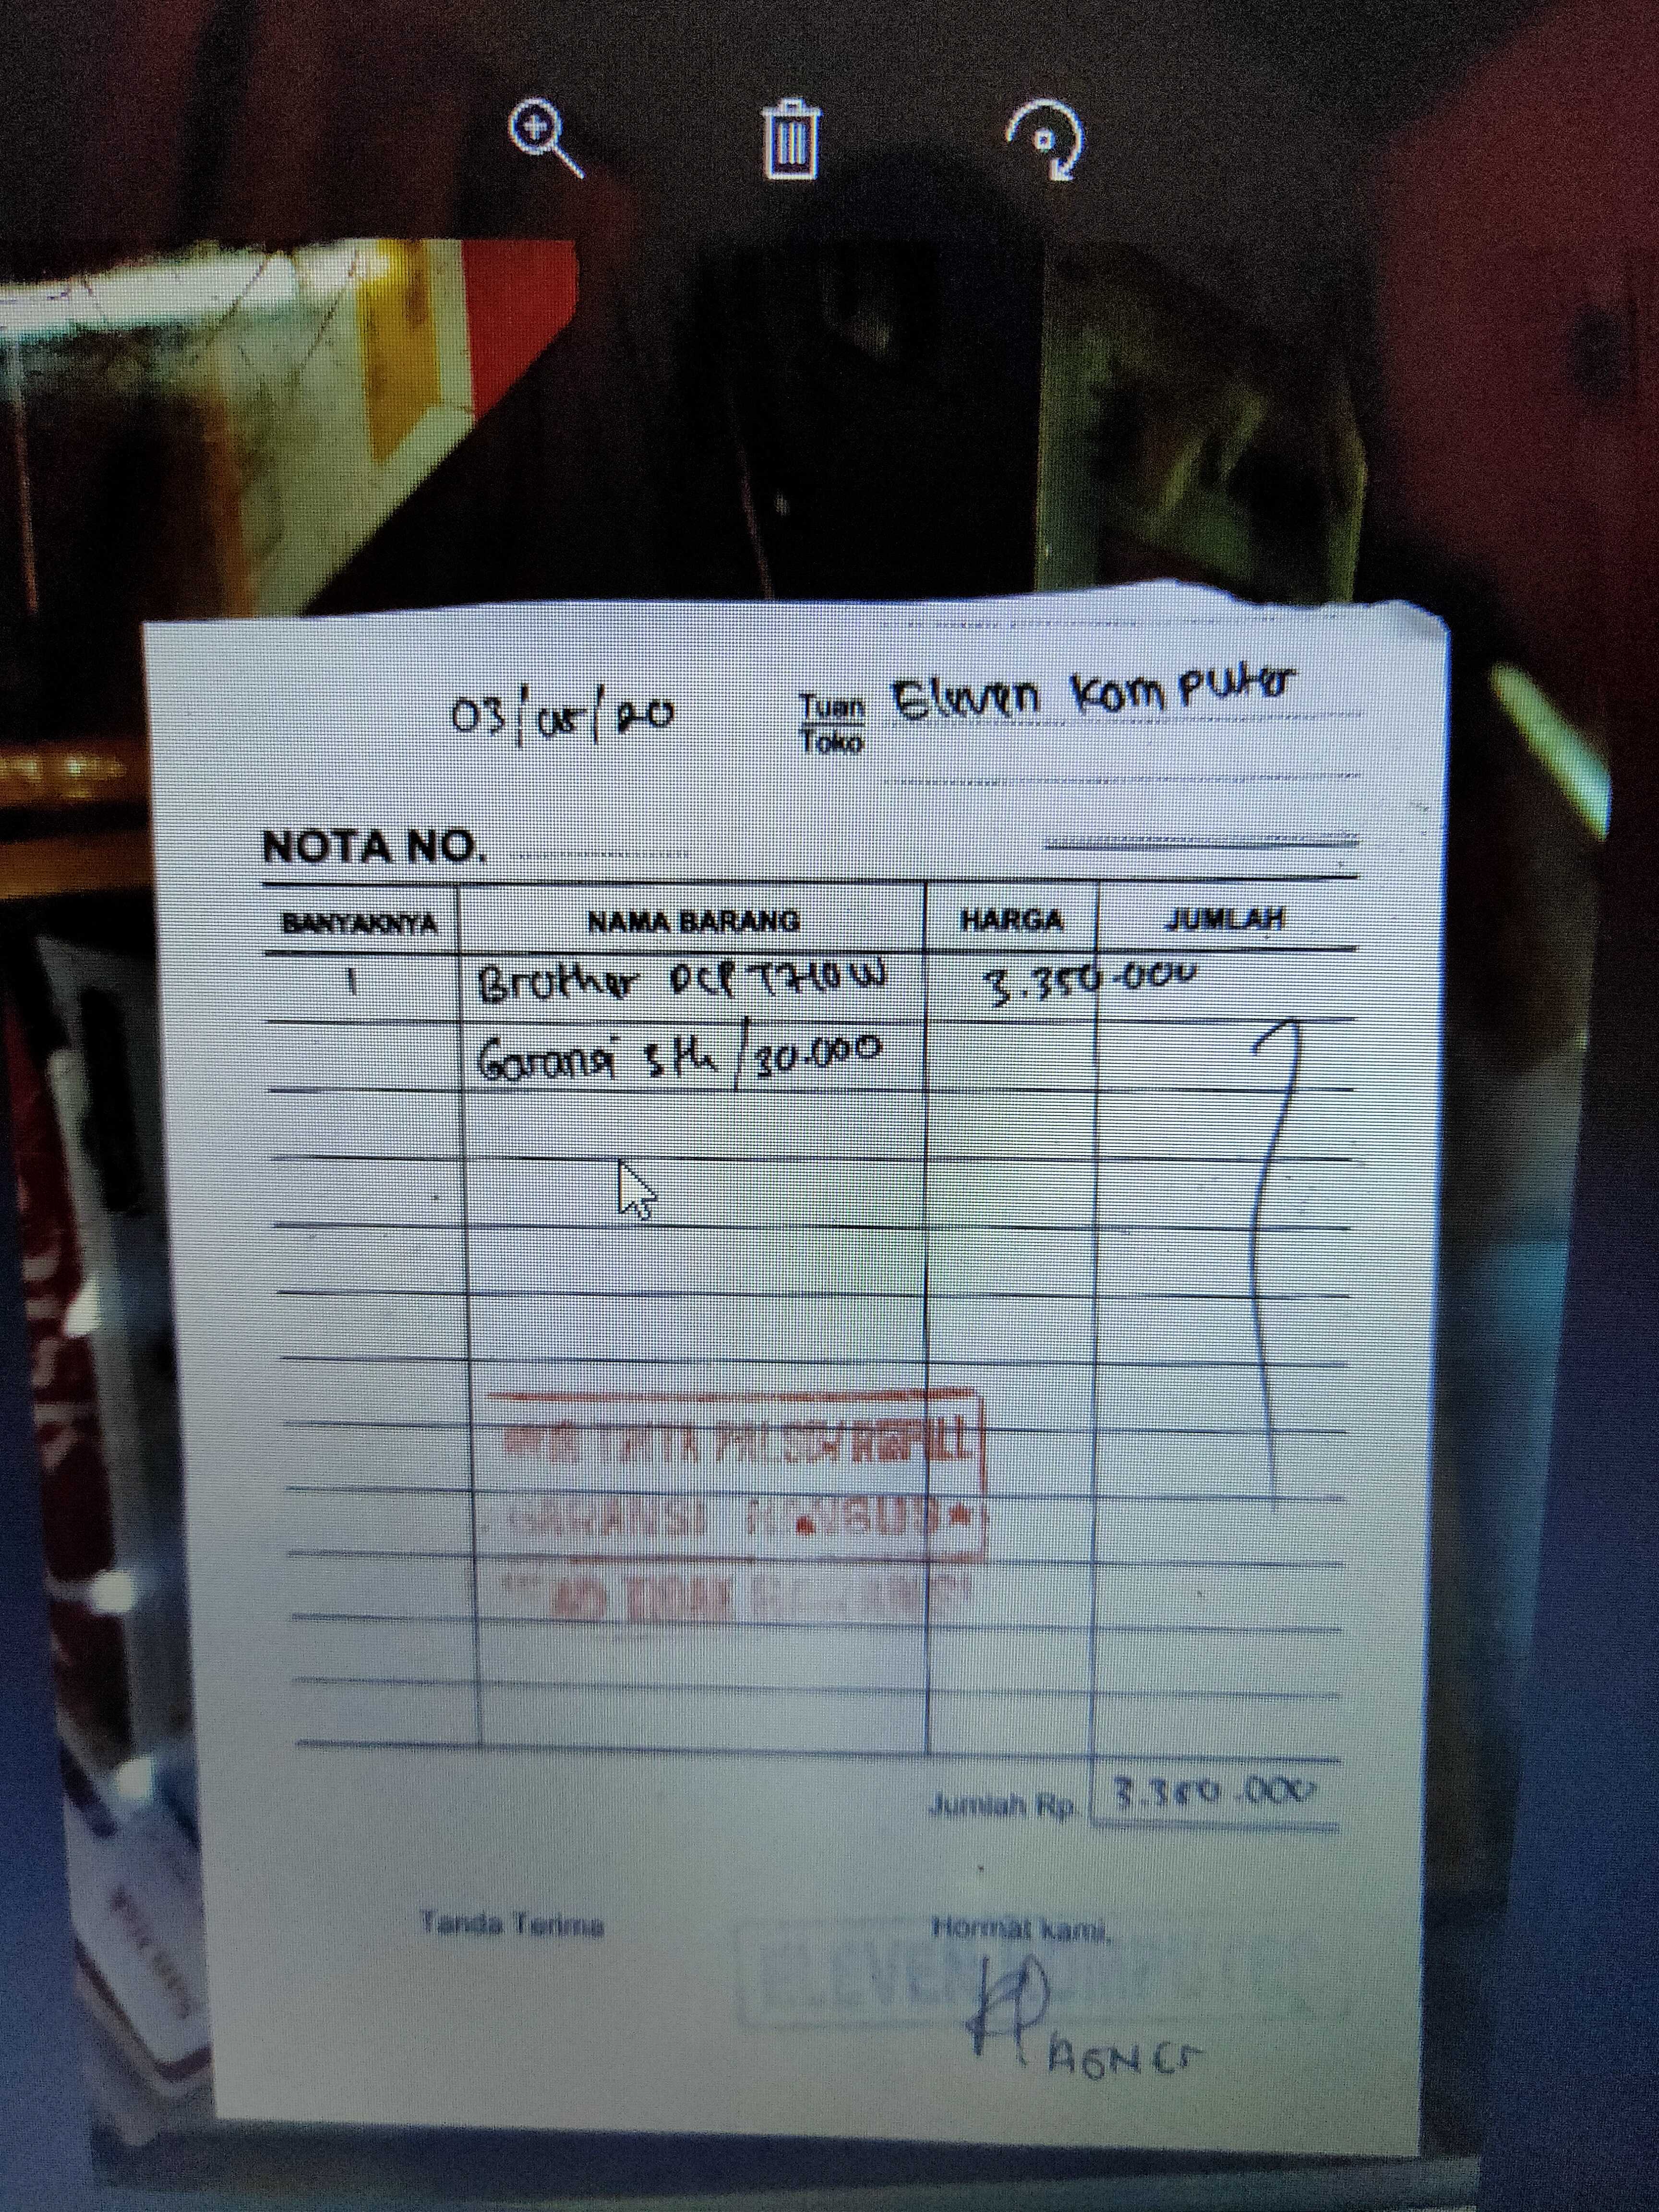 03/05/20
Tuan Eleven Komputer
Toko
NOTA NO.
BANYAKNYA NAMA BARANG HARGA JUMLAH
1 Brother DCP T710W 3.350.000
Garansi 3 th / 30.000
REFILL
GARANSI HANGUS
TIDAK
Jumlah Rp. 3.350.000
Tanda Terima Hormat kami,
ELEVEN KOMPUTER
AGNES